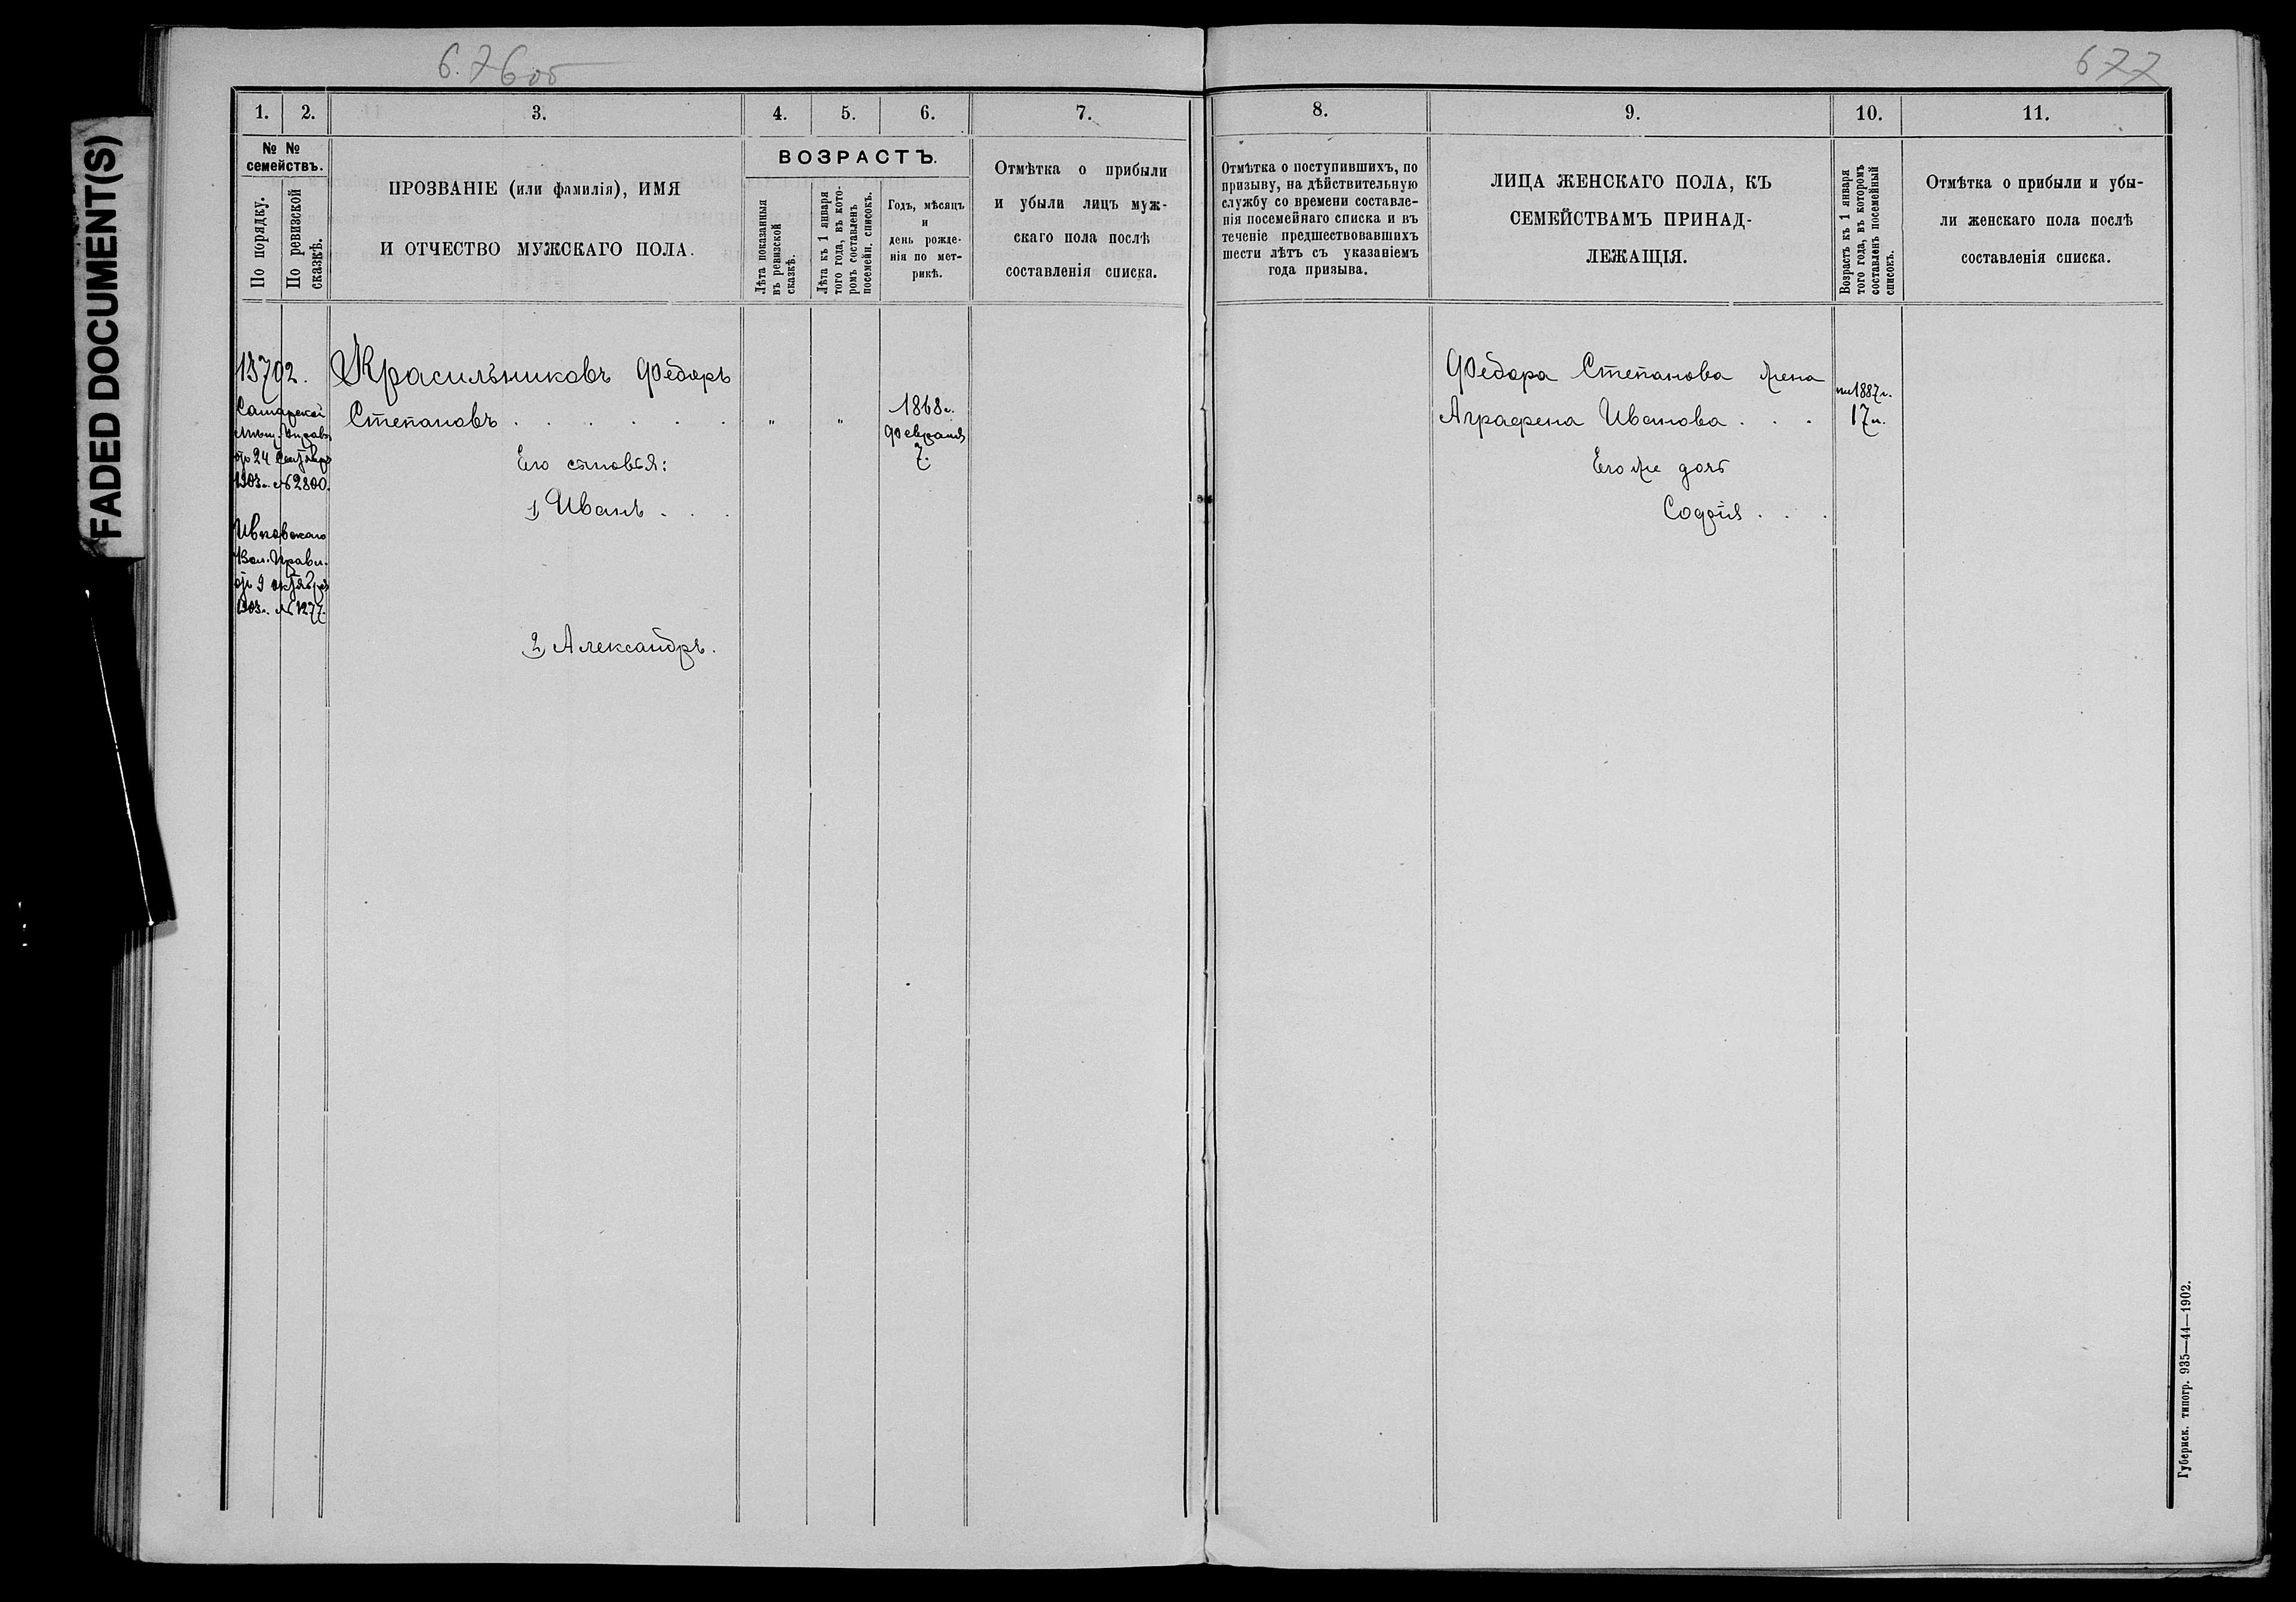 FADED DOCUMENT(S)
676об
1.
2.
3.
4.
5.
6.
7.
№ №
семействъ.
По порядку.
По ревизской
сказкѣ.
ПРОЗВАНІЕ (или фамилія), ИМЯ
И ОТЧЕСТВО МУЖСКАГО ПОЛА.
ВОЗРАСТЪ.
Лѣта показанныя
въ ревизской
сказкѣ.
Лѣта къ 1 января
того года, въ кото-
ромъ составленъ
посемейн. списокъ.
Годъ, мѣсяцъ
и
день рожде-
нія по мет-
рикѣ.
Отмѣтка о прибыли
и убыли лицъ муж-
скаго пола послѣ
составленія списка.
13792.
Самарской
Мѣщ. Управы
отъ 24 Сентября
1903г. № 2800.
Ивковскаго
Вол. Правл.
отъ 9 октября
1903г. № 1277.
Красильниковъ Ѳедоръ
Степановъ . . . . . . „ „
1868г.
Февраля
7.
Его сыновья:
1) Иванъ . . .
2) Александръ.
677
8.
9.
10.
11.
Отмѣтка о поступившихъ, по
призыву, на дѣйствительную
службу со времени составле-
нія посемейнаго списка и въ
теченіе предшествовавшихъ
шести лѣтъ съ указаніемъ
года призыва.
ЛИЦА ЖЕНСКАГО ПОЛА, КЪ
СЕМЕЙСТВАМЪ ПРИНАД-
ЛЕЖАЩІЯ.
Возрастъ къ 1 января
того года, въ которомъ
составленъ посемейный
списокъ.
Отмѣтка о прибыли и убы-
ли женскаго пола послѣ
составленія списка.
Ѳедора Степанова жена
Аграфена Иванова . . .
1887г.
17л.
Его же дочь
Софія . . .
Губернск. типогр. 935—44—1902.